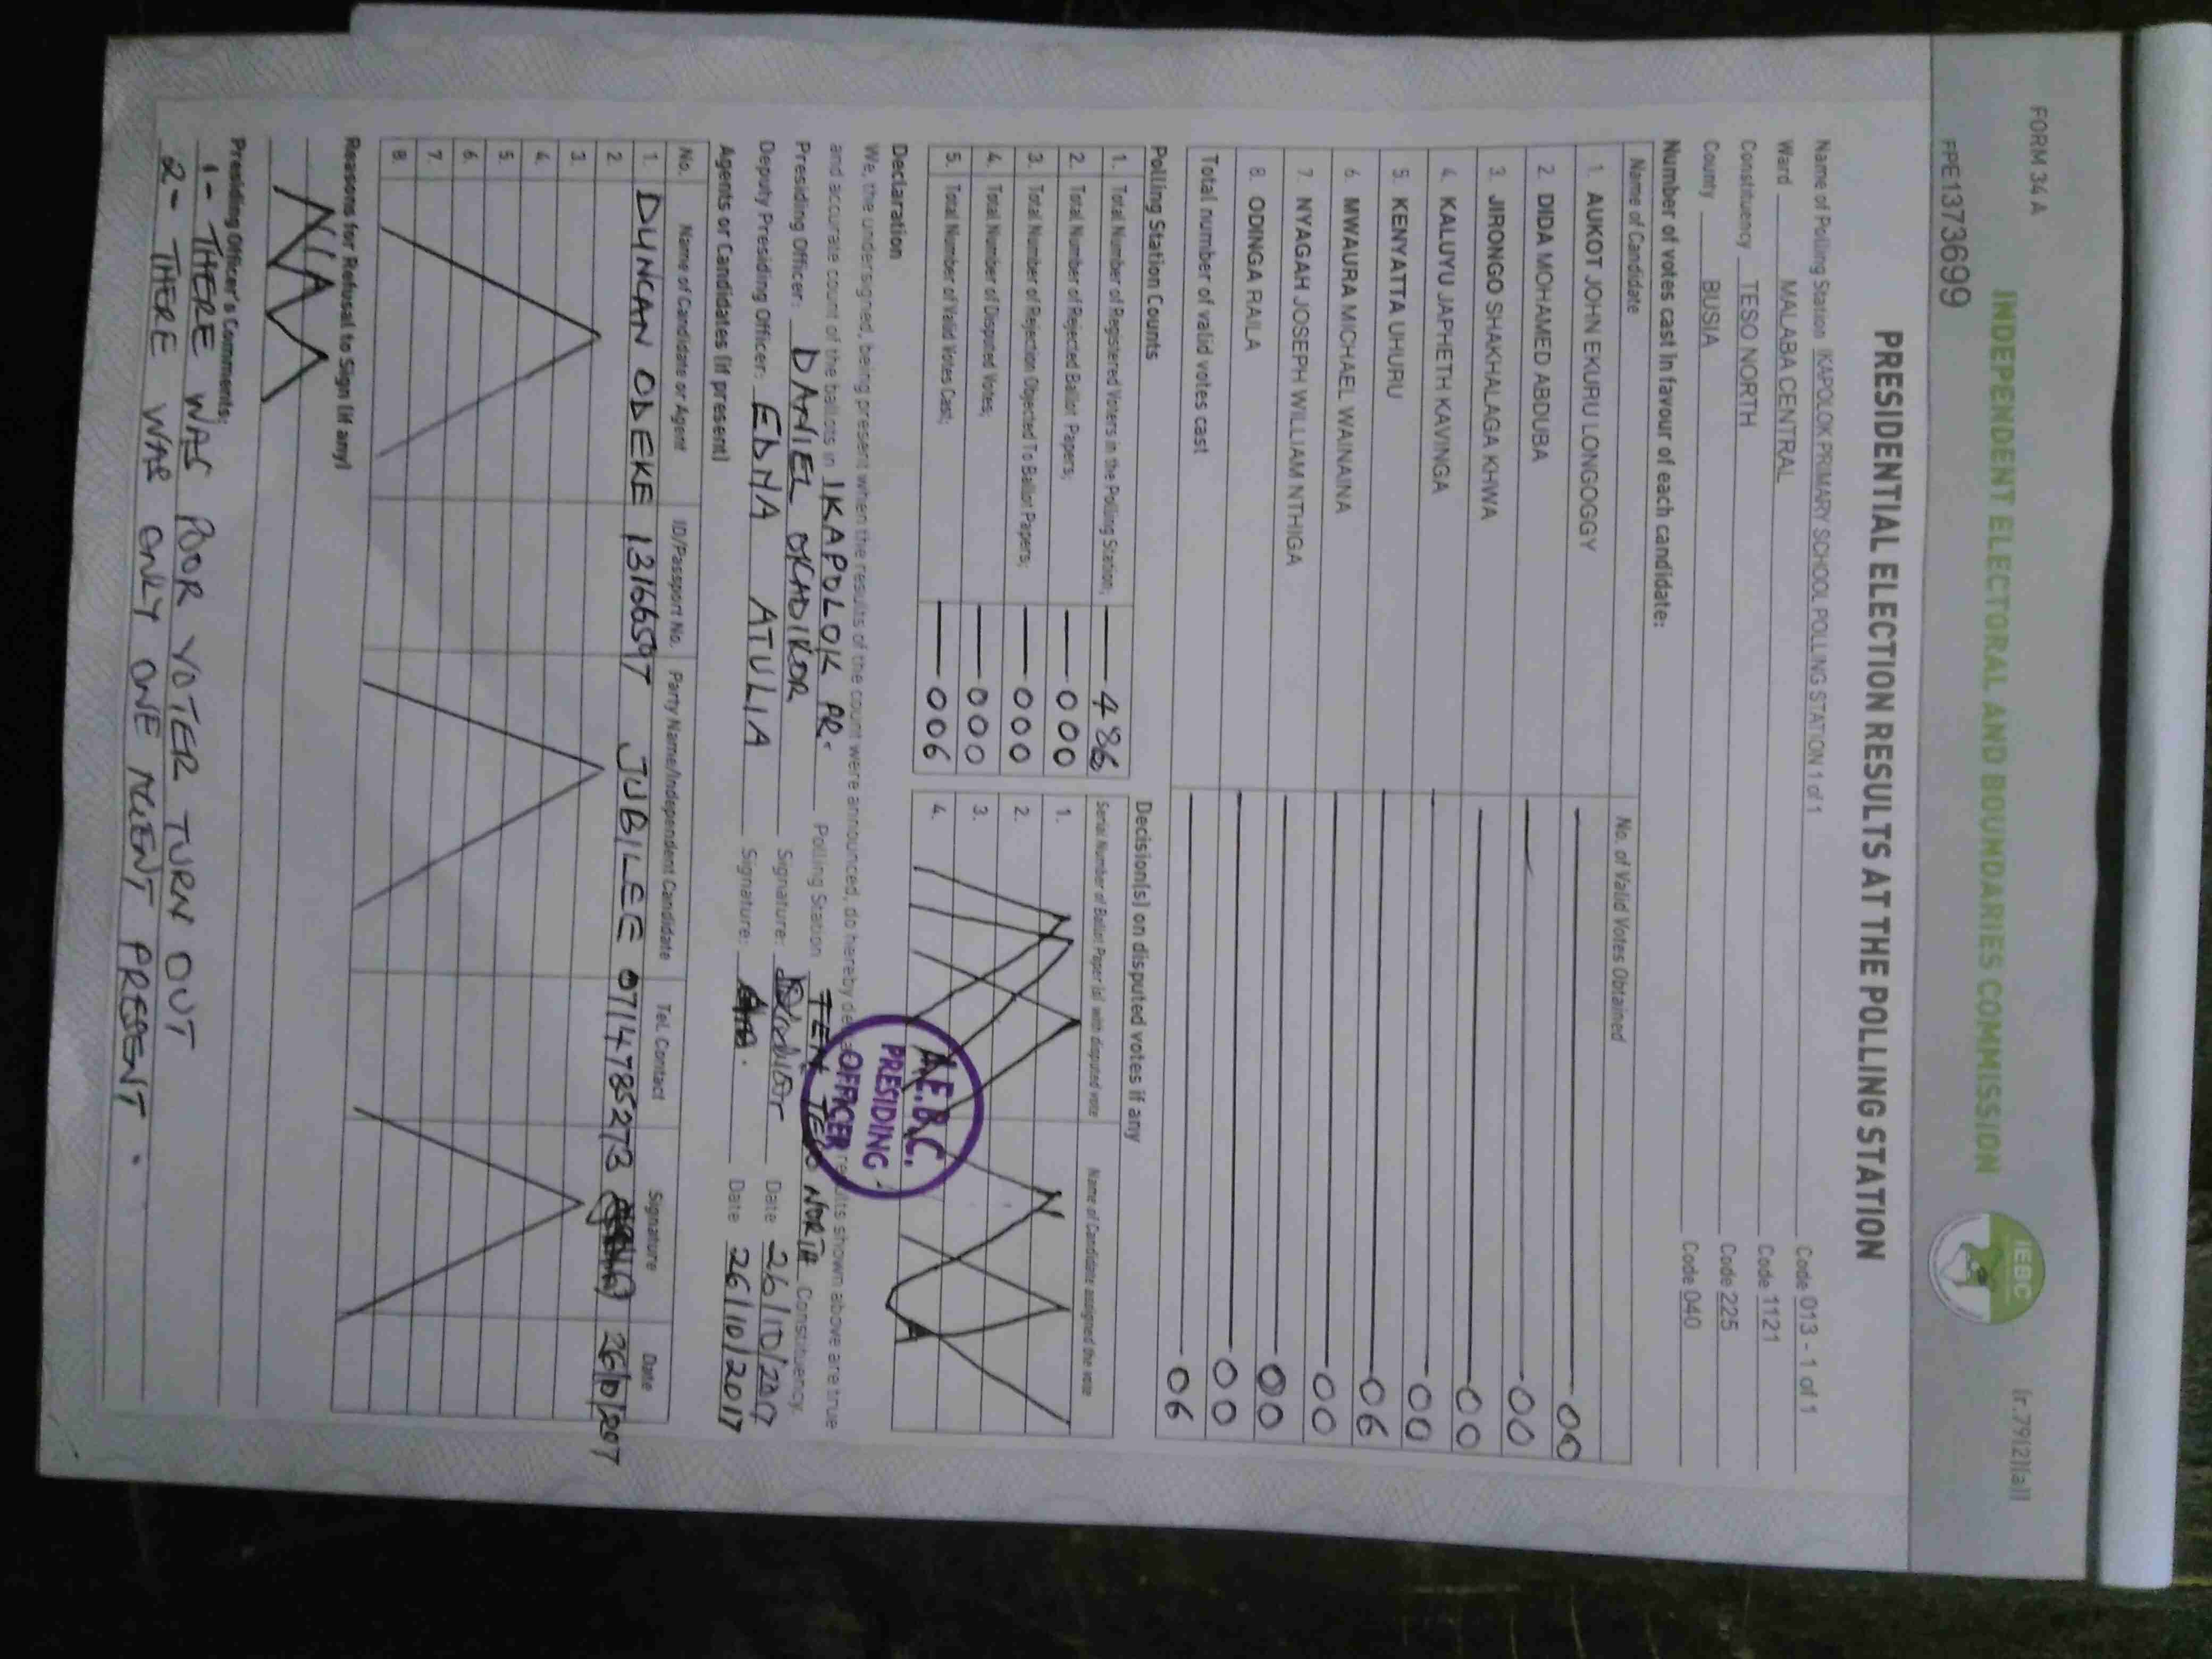 FORM 34 A
INDEPENDENT ELECTORAL AND BOUNDARIES COMMISSION
IEBC
FPE1373699
PRESIDENTIAL ELECTION RESULTS AT THE POLLING STATION
Name of Polling Station IKAPOLOK PRIMARY SCHOOL POLLING STATION 1 of 1 Code 013 - 1 of 1
Ward MALABA CENTRAL Code 1121
Constituency TESO NORTH Code 225
County BUSIA Code 040
Number of votes cast in favour of each candidate:
Name of Candidate No. of Valid Votes Obtained
1. AUKOT JOHN EKURU LONGOGGY 00
2. DIDA MOHAMED ABDUBA 00
3. JIRONGO SHAKHALAGA KHWA 00
4. KALUYU JAPHETH KAVINGA 00
5. KENYATTA UHURU 06
6. MWAURA MICHAEL WAINAINA 00
7. NYAGAH JOSEPH WILLIAM NTHIGA 00
8. ODINGA RAILA 00
Total number of valid votes cast 06
Polling Station Counts
1. Total Number of Registered Voters in the Polling Station; 486
2. Total Number of Rejected Ballot Papers; 000
3. Total Number of Rejection Objected To Ballot Papers; 000
4. Total Number of Disputed Votes; 000
5. Total Number of Valid Votes Cast; 006
Decision(s) on disputed votes if any
Serial Number of Ballot Paper (s) with disputed vote Name of Candidate assigned the vote
1.
2.
3.
4.
I.E.B.C.
PRESIDING
OFFICER
Declaration
We, the undersigned, being present when the results of the count were announced, do hereby shown above are true
and accurate count of the ballots in IKAPOLOK PR. Polling Station TESO NORTH Constituency.
Presiding Officer: DANIEL Signature: Date 26/10/2017
Deputy Presiding Officer: EDNA ATULIA Signature: Date 26/10/2017
Agents or Candidates (if present)
No. Name of Candidate or Agent ID/Passport No. Party Name/Independent Candidate Tel. Contact Signature Date
1. DUNCAN ODEKE JUBILEE
2.
3.
4.
5.
6.
7.
8.
Reasons for Refusal to Sign (if any)
N/A
Presiding Officer's Comments:
1- THERE WAS POOR VOTER TURN OUT
2- THERE WAS ONLY ONE AGENT PRESENT.